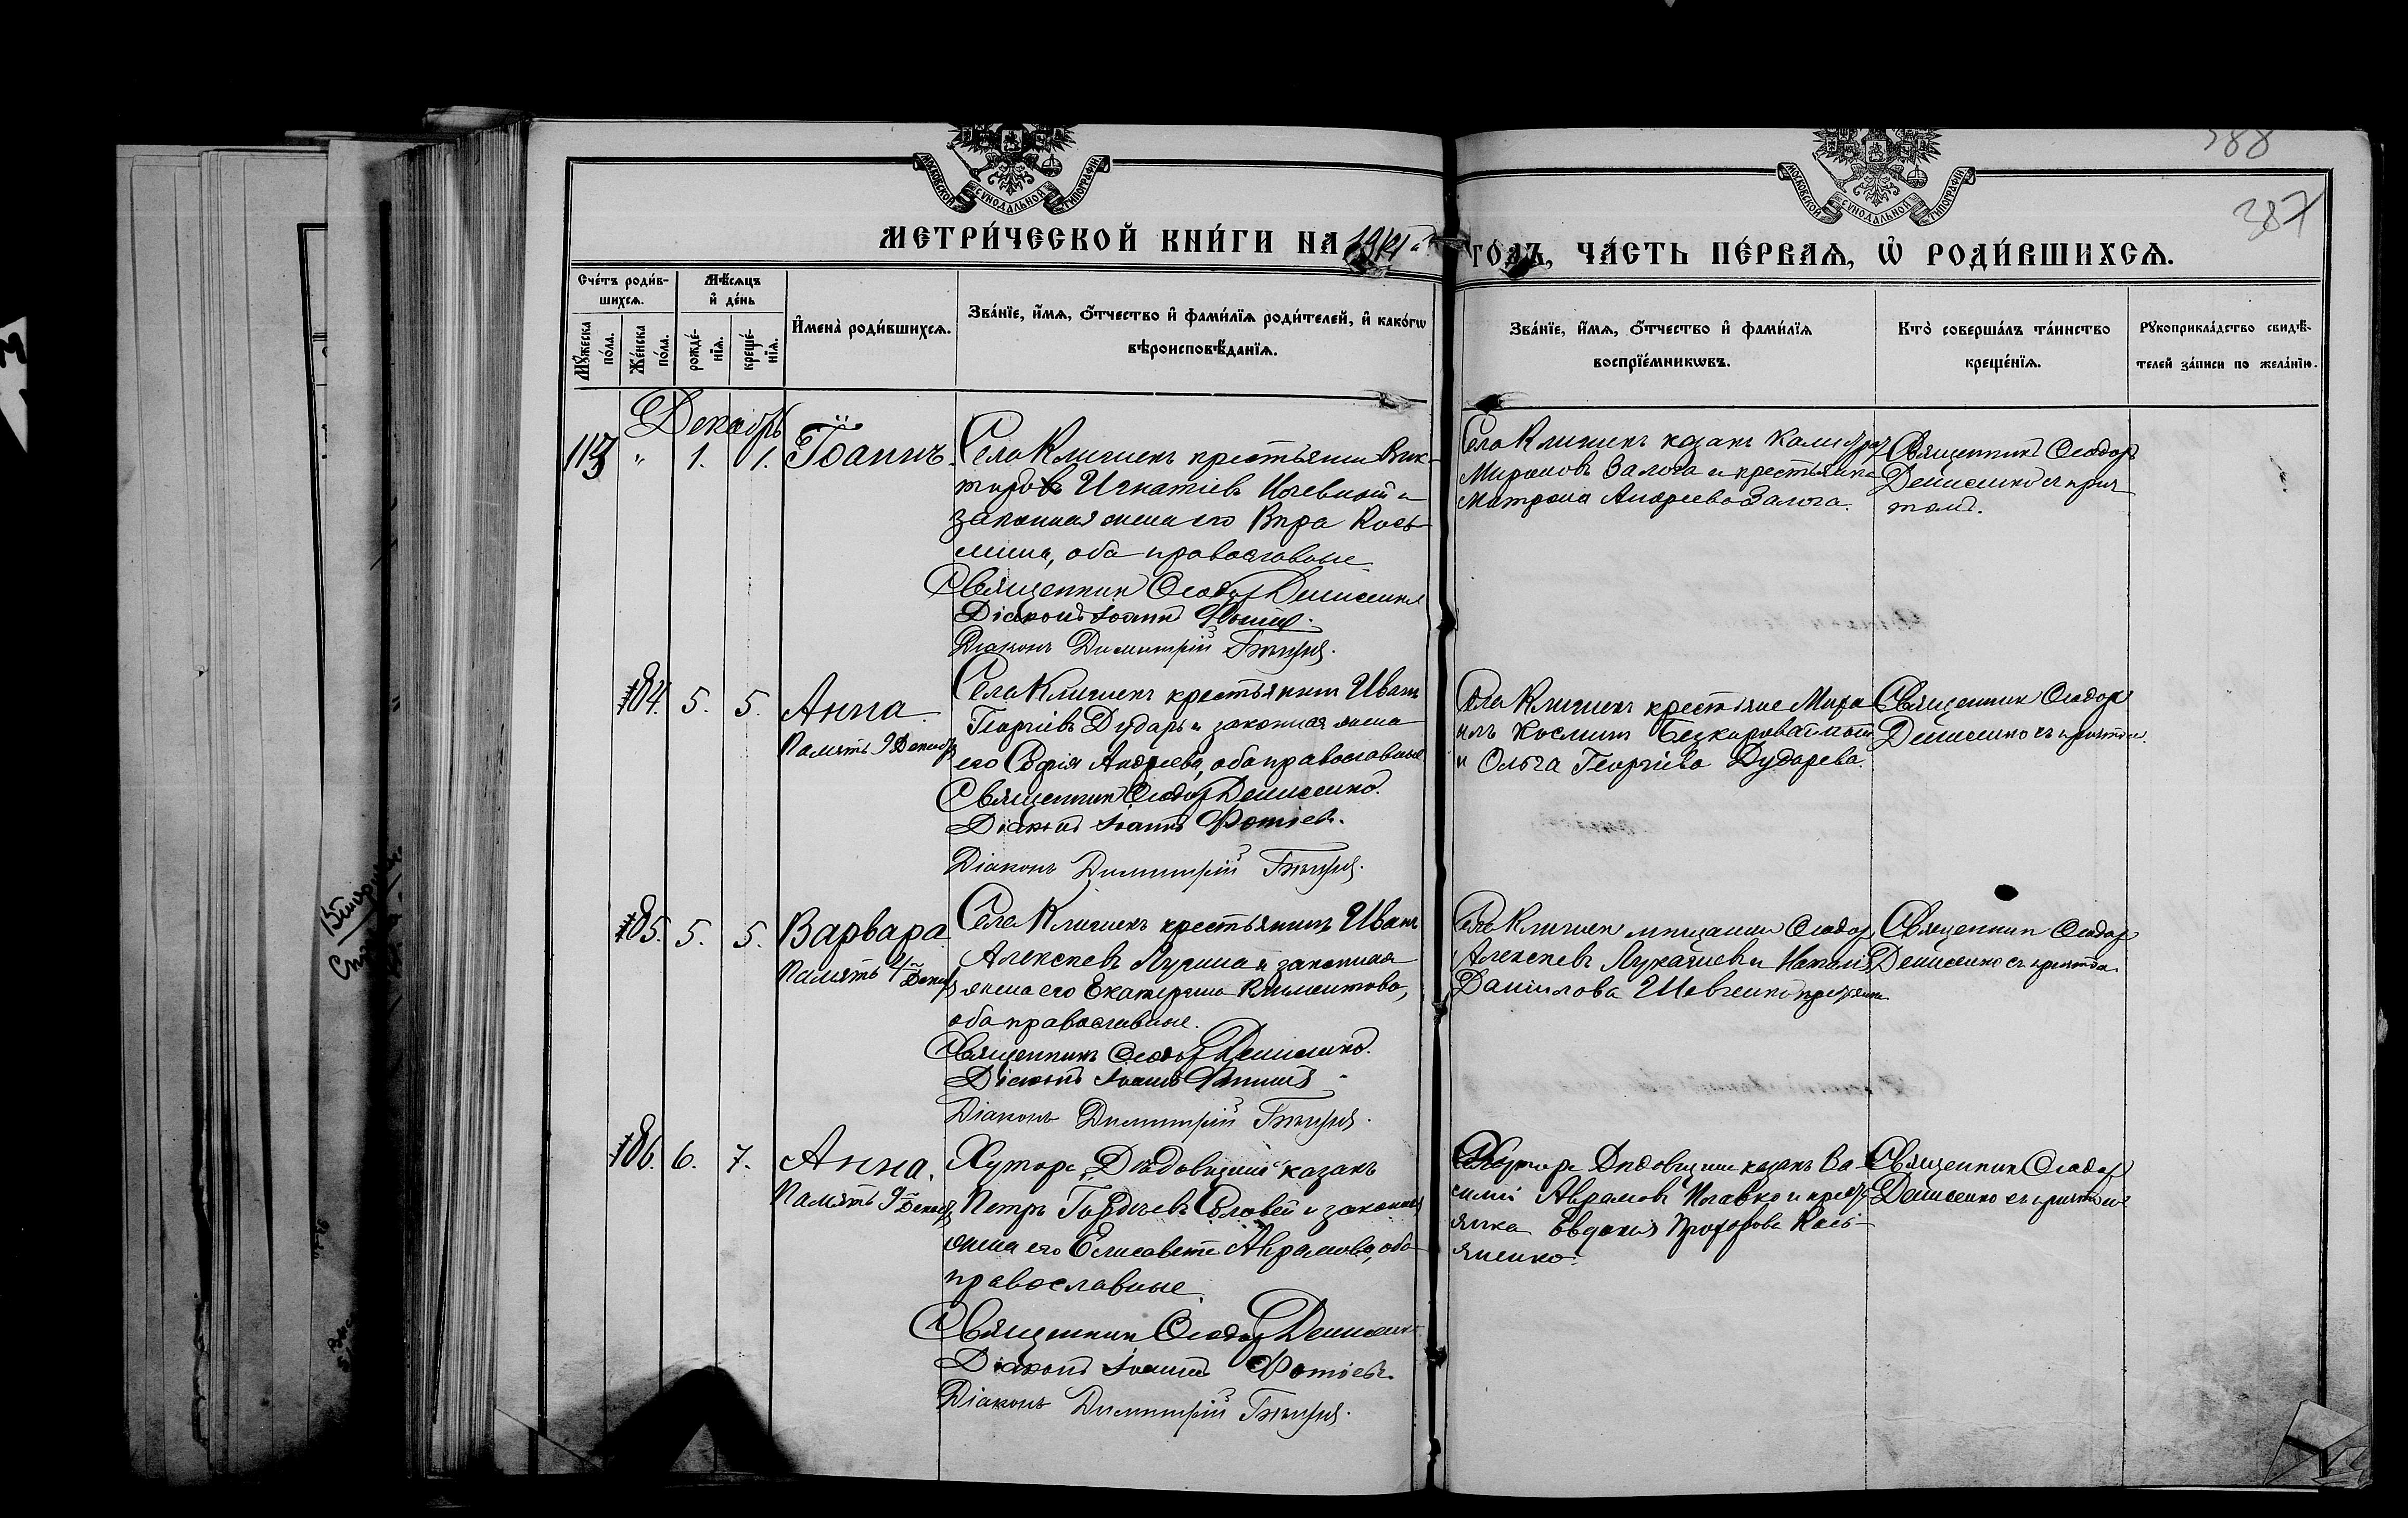 МОСКОВСКОЙ СУНОДАЛЬНОЙ ТИПОГРАФІИ
МОСКОВСКОЙ СУНОДАЛЬНОЙ ТИПОГРАФІИ
388
387
МЕТРИ́ЧЕСКОЙ КНИ́ГИ НА
ГОДЪ, ЧА́СТЬ ПЕ́РВАѦ, Ѡ҆ РОДИ́ВШИХСѦ.
Сче́тъ роди́в-
шихсѧ.
Мѣ́сѧцъ
и҆ де́нь
Мꙋ́жеска
по́ла.
Же́нска
по́ла.
рожде́-
нїѧ.
креще́-
нїѧ.
И҆мена̀ роди́вшихсѧ.
Зва́нїе, и҆́мѧ, ѻ҆́тчество и҆ фами́лїѧ роди́телей, и҆ како́гѡ
вѣроисповѣ́данїѧ.
Зва́нїе, и҆́мѧ, ѻ҆́тчество и҆ фами́лїѧ
воспрїе́мникѡвъ.
Кто̀ соверша́лъ та́инство
креще́нїѧ.
Рꙋкоприкла́дство свидѣ́-
телей за́писи по жела́нїю.
Декабрь
113 " 1. 1. Іоаннъ.
Села Клишекъ крестьянинъ Вик-
торъ Игнатіевъ и
законная жена его Вѣра Кось-
мина, оба православные
Священникъ Ѳеодоръ Денисенко
Діаконъ Іоаннъ
Діаконъ Димитрій
Села Клишекъ казакъ
Мироновъ Залога и крестьянка
Матрона Андреева Залога.
Священникъ Ѳеодоръ
Денисенко съ прич
томъ.
184. 5. 5. Анна.
Память 9 Декабр
Села Клишекъ крестьянинъ Иванъ
Георгіевъ Дударь и законная жена
его Софія Андреева, оба православные
Священникъ Ѳеодоръ Денисенко.
Діаконъ Іоаннъ Фотіевъ.
Діаконъ Димитрій
Села Клишекъ крестьяне Миро
нъ Косминъ
и Ольга Георгіева Дударева.
Священникъ Ѳеодоръ
Денисенко съ причтом.
185. 5. 5. Варвара
Память 4 Декаб
Села Клишекъ крестьянинъ Иванъ
Алексѣевъ и законная
жена его Екатерина Климентова,
оба православные.
Священникъ Ѳеодоръ Денисенко.
Діаконъ Іоаннъ
Діаконъ Димитрій
Села Клишекъ мѣщанинъ Ѳеодоръ
Алексѣевъ и Наталія
Даніилова Шевченко крестьянка
Священникъ Ѳеодоръ
Денисенко съ причтом
186. 6. 7. Анна.
Память 9 Декаб
Хутора Дѣдовщины казакъ
Петръ Гордѣевъ Соловей и законная
жена его Елисавета Аврамова, оба
православные.
Священникъ Ѳеодоръ Денисенко
Діаконъ Іоаннъ Фотіевъ.
Діаконъ Димитрій
Хутора Дѣдовщины казакъ Ва-
силій Аврамовъ и кресть
янка Евдокія Прохорова Кась-
яненко.
Священникъ Ѳеодоръ
Денисенко съ причтомъ